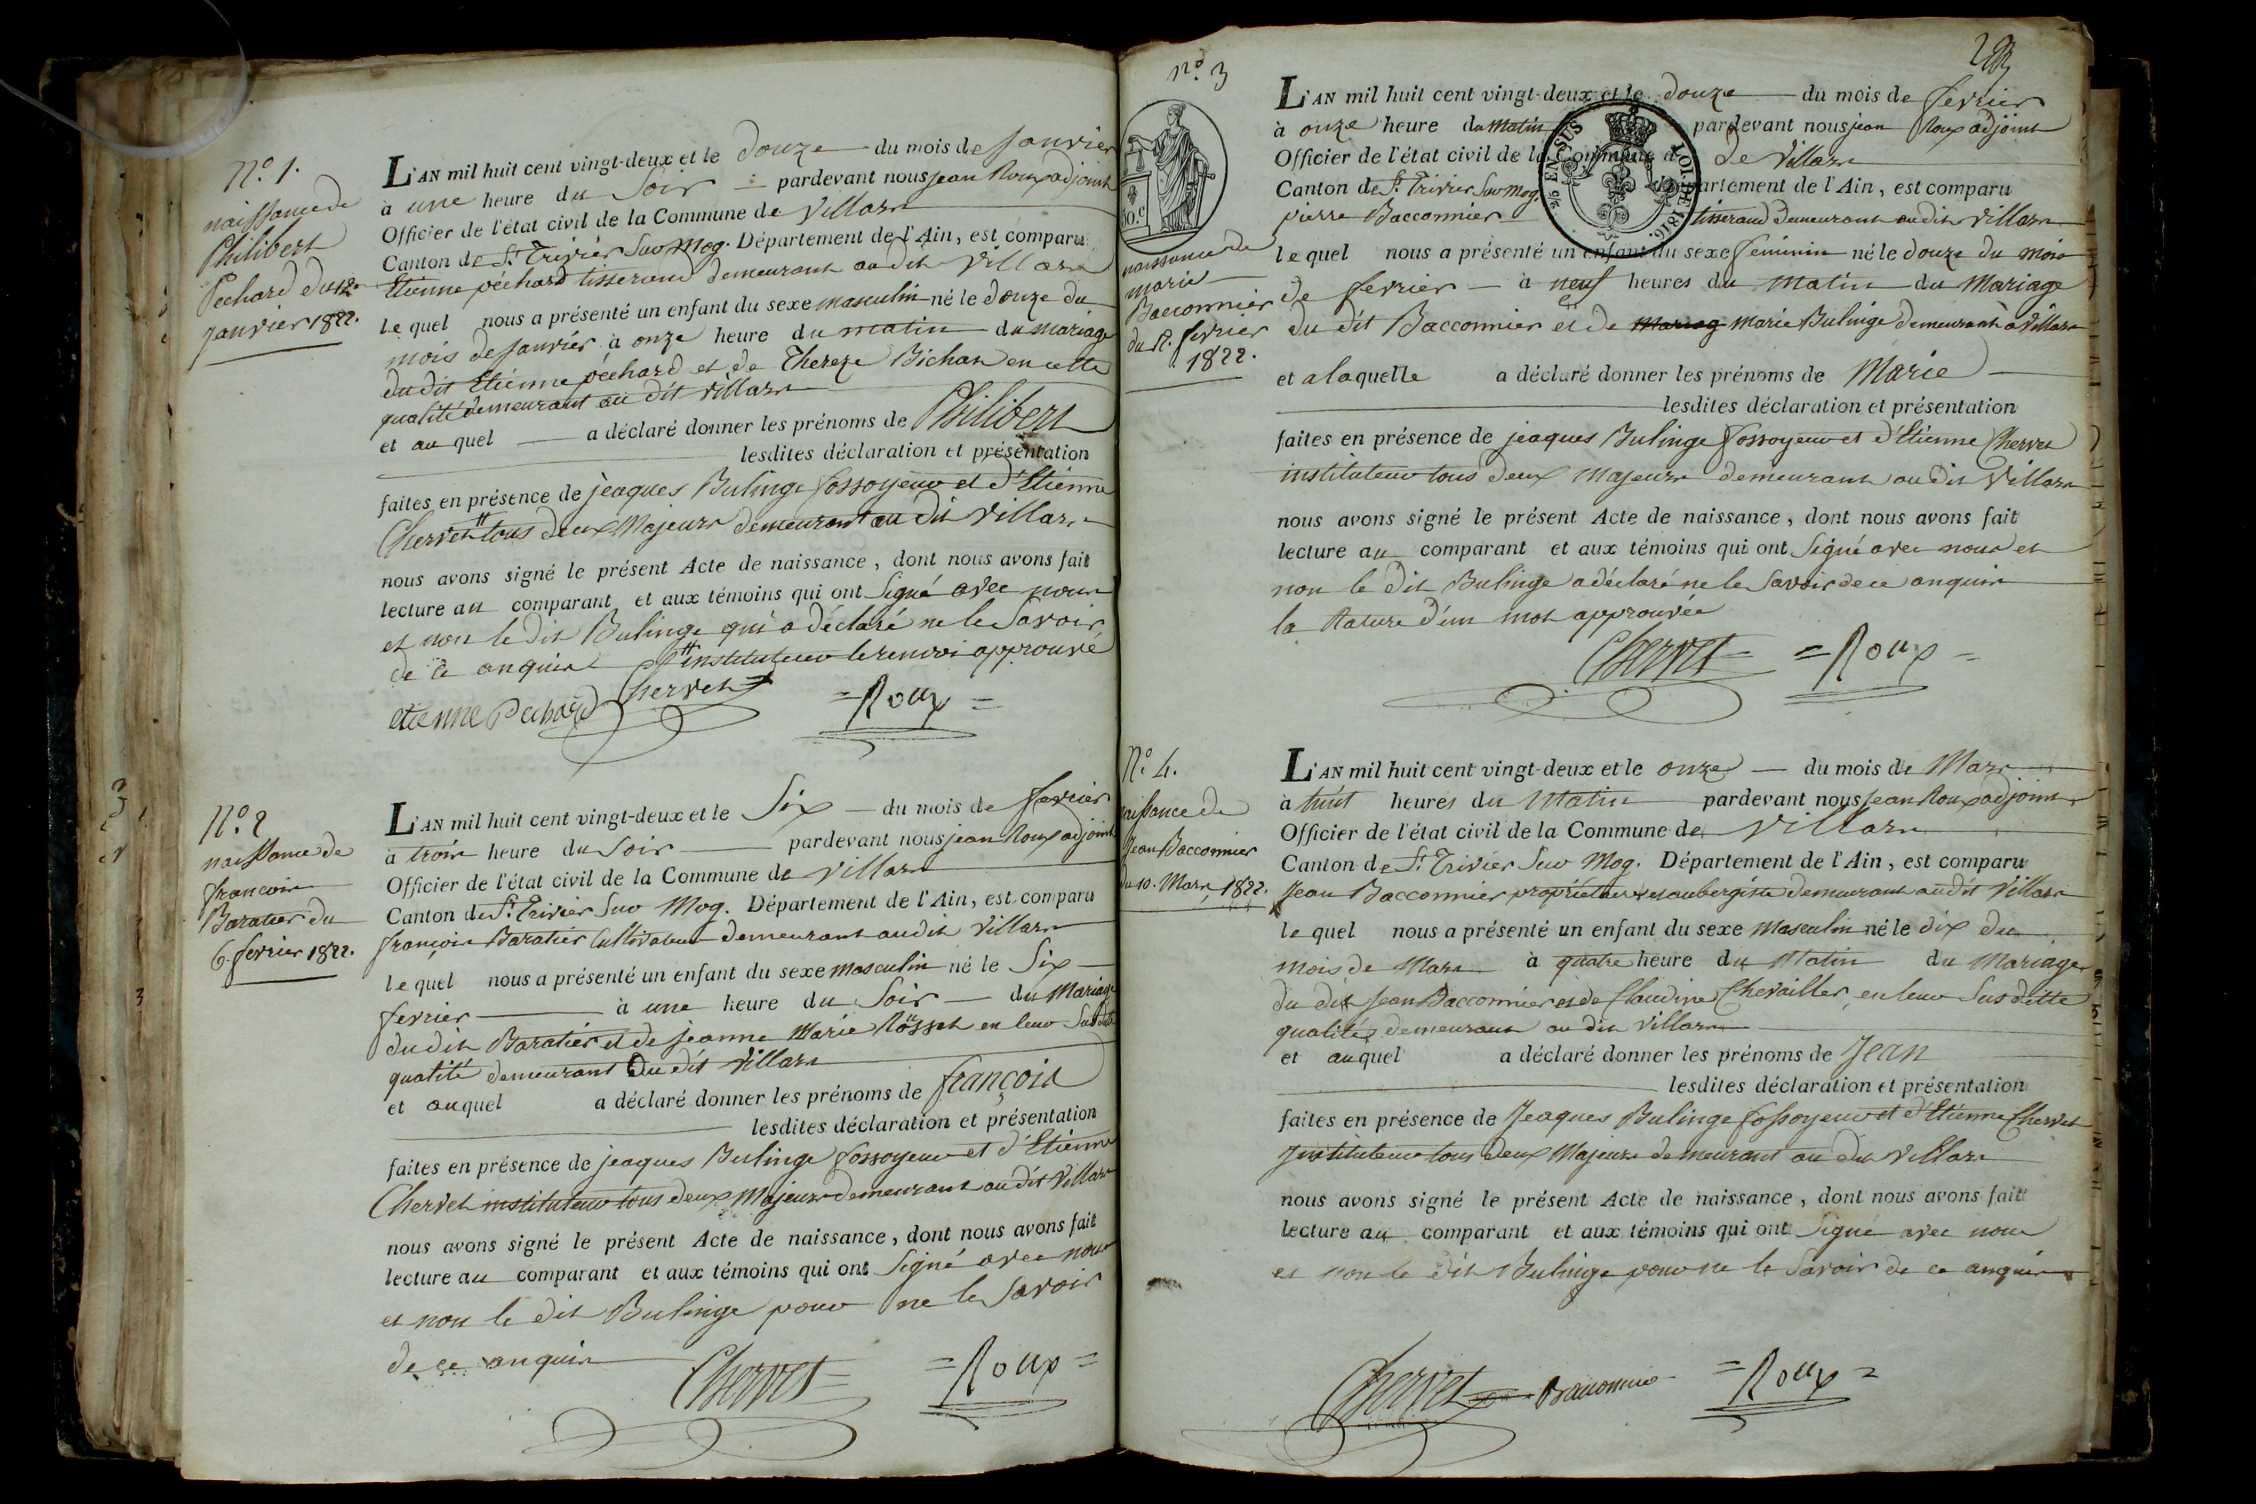 N.º 1.
naissance de
Philibert
Pechard du 12
janvier 1822.
L'AN mil huit cent vingt-deux et le douze du mois de janvier
à une heure du soir pardevant nous jean Roux adjoint
Officier de l'état civil de la Commune de Villars
Canton de St. Trivier Suv Mog. Département de l'Ain, est comparu
Etienne péchard tisserand demeurant audit Villars
le quel nous a présenté un enfant du sexe masculin né le douze du
mois de janvier à onze heure du matin du mariage
du dit Etienne péchard et de Thereze Bichan en cette
qualité demeurant au dit villars
et au quel a déclaré donner les prénoms de Philibert
lesdites déclaration et présentation
faites en présence de jeaques Bulinge fossoyeur et d'Etienne
Chervet # tous deux Majeurs demeurant au dit Villars
nous avons signé le présent Acte de naissance, dont nous avons fait
lecture au comparant et aux témoins qui ont Signé avec nous
et non le dit Bulinge qui a déclaré ne le Savoir
de ce anquis # instituteur le renvoi approuvé
etienne Pechard Chervet = Roux =
N.º 2
naissance de
françois
Baratier du
6. fevrier 1822.
L'AN mil huit cent vingt-deux et le Six du mois de fevrier
à trois heure du Soir pardevant nous jean Roux adjoint
Officier de l'état civil de la Commune de Villars
Canton de St. Trivier Suv Mog. Département de l'Ain, est comparu
françois Baratier Cultivateur demeurant audit Villars
le quel nous a présenté un enfant du sexe masculin né le Six
fevrier à une heure du Soir du Mariage
du dit Baratier et de jeanne Marie Rosset en leur Susdite
qualité demeurant Du dit Villars
et auquel a déclaré donner les prénoms de françois
lesdites déclaration et présentation
faites en présence de jeaques Bulinge fossoyeur et d'Etienne
Chervet instituteur tous deux Majeurs demeurant au dit Villars
nous avons signé le présent Acte de naissance, dont nous avons fait
lecture au comparant et aux témoins qui ont Signé avec nous
et non le dit Bulinge pour ne le Savoir
de ce anquis
Chervet = Roux =
N.º 3
naissance de
marie
Bacconnier
du 12. fevrier
1822.
L'AN mil huit cent vingt-deux et le douze du mois de fevrier
à onze heure du Matin pardevant nous jean Roux adjoint
Officier de l'état civil de la Commune de de Villars
Canton de St. Trivier Suv Mog. Département de l'Ain, est comparu
pierre Bacconnier tisserand demeurant au dit Villars
le quel nous a présenté un enfant du sexe féminin né le douze du mois
de fevrier à neuf heures du Matin du Mariage
du dit Bacconnier et de Mariag marie Bulinge demeurant à Villars
et a laquelle a déclaré donner les prénoms de Marie
lesdites déclaration et présentation
faites en présence de jeaques Bulinge fossoyeur et d'Etienne Chervet
instituteur tous deux Majeurs demeurant au dit Villars
nous avons signé le présent Acte de naissance, dont nous avons fait
lecture au comparant et aux témoins qui ont Signé avec nous et
non le dit Bulinge a déclaré ne le Savoir de ce anquis
la Rature d'un mot approuvée
Chervet = Roux =
EN SUS LOI DE 1816.
N.º 4.
naissance de
Jean Bacconnier
du 10. Mars 1822.
L'AN mil huit cent vingt-deux et le onze du mois de Mars
à huit heures du Matin pardevant nous jean Roux adjoint
Officier de l'état civil de la Commune de Villars
Canton de St. Trivier Suv Mog. Département de l'Ain, est comparu
Jean Bacconnier propriétaire et aubergiste demeurant audit Villars
le quel nous a présenté un enfant du sexe Masculin né le dix du
mois de Mars à quatre heure du Matin du Mariage
du dit Jean Bacconnier et de Claudine Chevailler en leur Susditte
qualité demeurant au dit Villars
et auquel a déclaré donner les prénoms de Jean
lesdites déclaration et présentation
faites en présence de Jeaques Bulinge fossoyeur et d'Etienne Chervet
Instituteur tous deux Majeurs demeurant au dit Villars
nous avons signé le présent Acte de naissance, dont nous avons fait
lecture au comparant et aux témoins qui ont Signé avec nous
et non le dit Bulinge pour ne le Savoir de ce anquis
Chervet Bacconnier = Roux =